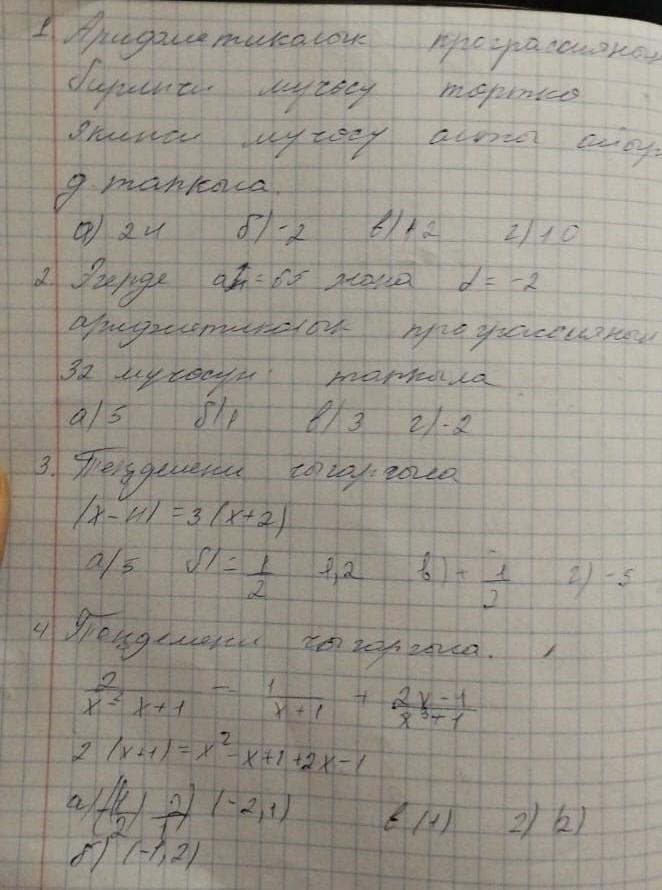 1. Арифметикалык прогрессиянын
биринчи мучосу тортко
экинчи мучосу алты
d тапкыла.
а) 24 б) -2 в) +2 г) 10
2. Эгерде = 65 жана d = -2
арифметикалык прогрессиянын
32 мучосун тапкыла
а) 5 б) 1 в) 3 г) -2
3. Теңдемени чыгаргыла
|x-4| = 3(x+2)
а) 5 б) = 1/2 1,2 в) + 1/2 г) -5
4. Теңдемени чыгаргыла.
2/(x² x+1) = 1/(x+1) + (2x-1)/(x³+1)
2 (x+1) = x² - x+1+2x-1
а) (-2,1) в (1) г) (2)
б) (-1,2)